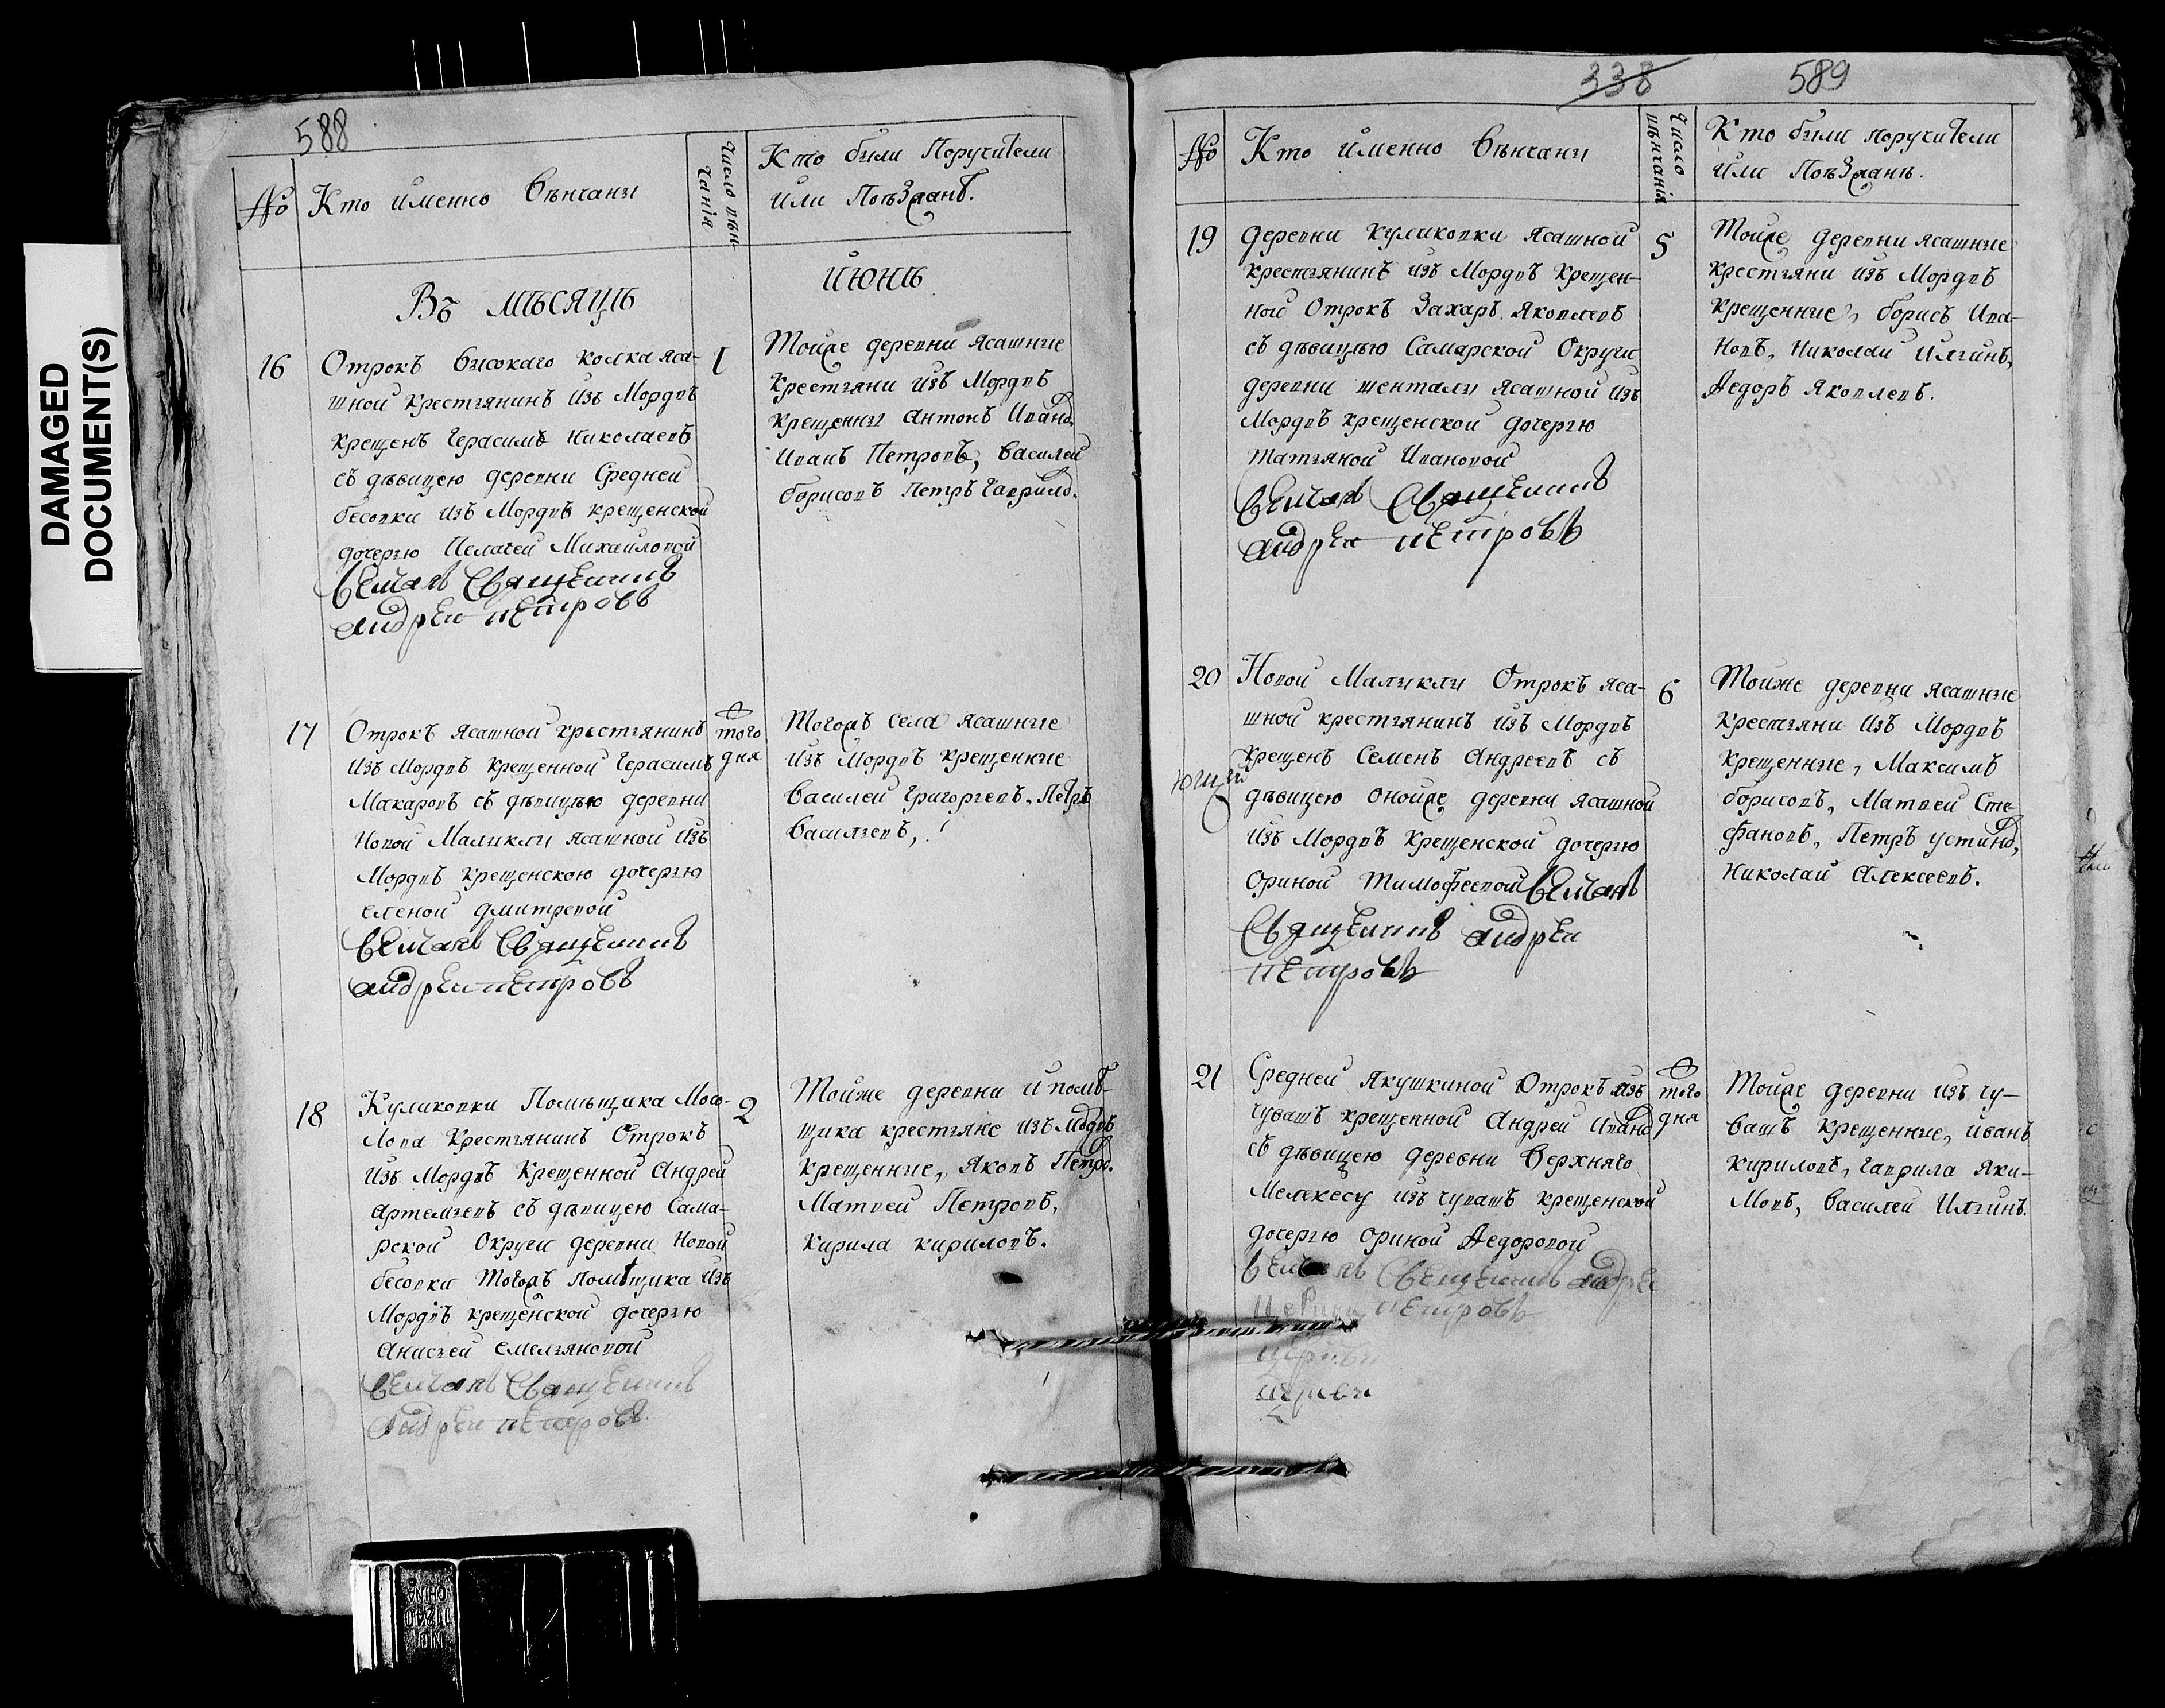 DAMAGED
DOCUMENT(S)
588
№
Кто именно Вѣнчаны
Число вѣн
чанія
Кто были Поручители
или Поѣзжанѣ.
Въ МѢСЯЦѢ
ИЮНѢ
16
Отрокъ Высокаго колка яса-
шной крестьянинъ изъ Мордвъ
крещенъ Герасимъ Николаевъ
съ дѣвицею деревни Средней
бесовки изъ Мордвъ крещенской
дочерью Пелагеи Михаиловой
Венчалъ Священникъ
андреи петровъ
1
Тойже деревни ясашные
крестьяни изъ Мордвъ
крещенны антонъ Ивано.
Иванъ Петровъ, василей
борисовъ Петръ гаврило.
17
Отрокъ ясашной крестьянинъ
изъ Мордвъ крещенной Герасимъ
Макаровъ съ дѣвицъю деревни
Новой Малыклы ясашной изъ
Мордвъ крещенскою дочерью
еленой дмитревой
Венчалъ Священникъ
андреи петровъ
того
дня
Тогожъ села ясашные
изъ Мордвъ крещенные
василей григорьевъ, Петръ
васильевъ,
18
Куликовки Помѣщика Мосо-
лова Крестьянинъ Отрокъ
изъ Мордвъ Крещенной Андрей
артемьевъ съ дѣвицею Сама-
рской Округи деревни Новой
бесовки тогожъ помѣщика изъ
Мордвъ крещенской дочерью
анисьей емельяновой
Венчалъ Священникъ
андреи петровъ
2
Тойже деревни и помѣ-
щика крестьяне изъ мордвъ
крещенные, Яковъ Петро.
Матвей Петровъ,
Кирила кириловъ.
338
589
№
Кто именно Вѣнчаны
Число
вѣнчанія
Кто были поручители
или Поѣзжанѣ.
19
деревни куликовки ясашной
крестьянинъ изъ Мордвъ Крещен-
ной Отрокъ Захаръ Яковлевъ
съ дѣвицъю Самарской Округи
деревни шенталы ясашной изъ
Мордвъ крещенской дочерью
татьяной Ивановой
Венчалъ Священникъ
андреи петровъ
5
Тойже деревни ясашние
крестьяни изъ Мордвъ
крещенные, борисъ Ива-
новъ, Николаи Ильинъ,
Федоръ Яковлевъ.
20
Новой Малыклы Отрокъ яса-
шной крестьянинъ изъ Мордвъ
крещенъ Семенъ Андреевъ съ
дѣвицею оной же деревни ясашной
изъ Мордвъ крещенской дочерью
ориной тимофеевой Венчалъ
Священникъ андреи
петровъ
6
Тойже деревни ясашние
крестьяни изъ Мордвъ
крещенные, Максимъ
борисовъ, Матвей Сте-
фановъ, Петръ устино,
Николай Алексеевъ.
21
Средней Якушкиной Отрокъ изъ
чувашъ крещенной Андрей Ивано
съ дѣвицею деревни Верхняго
Мелекесу изъ чувашъ крещенской
дочерью ориной Федоровой
Венчалъ Священникъ андреи
петровъ
церкви
того
дня
Тойже деревни изъ чу-
вашъ крещенные, иванъ
кириловъ, гаврила яки-
мовъ, василей Ильинъ.